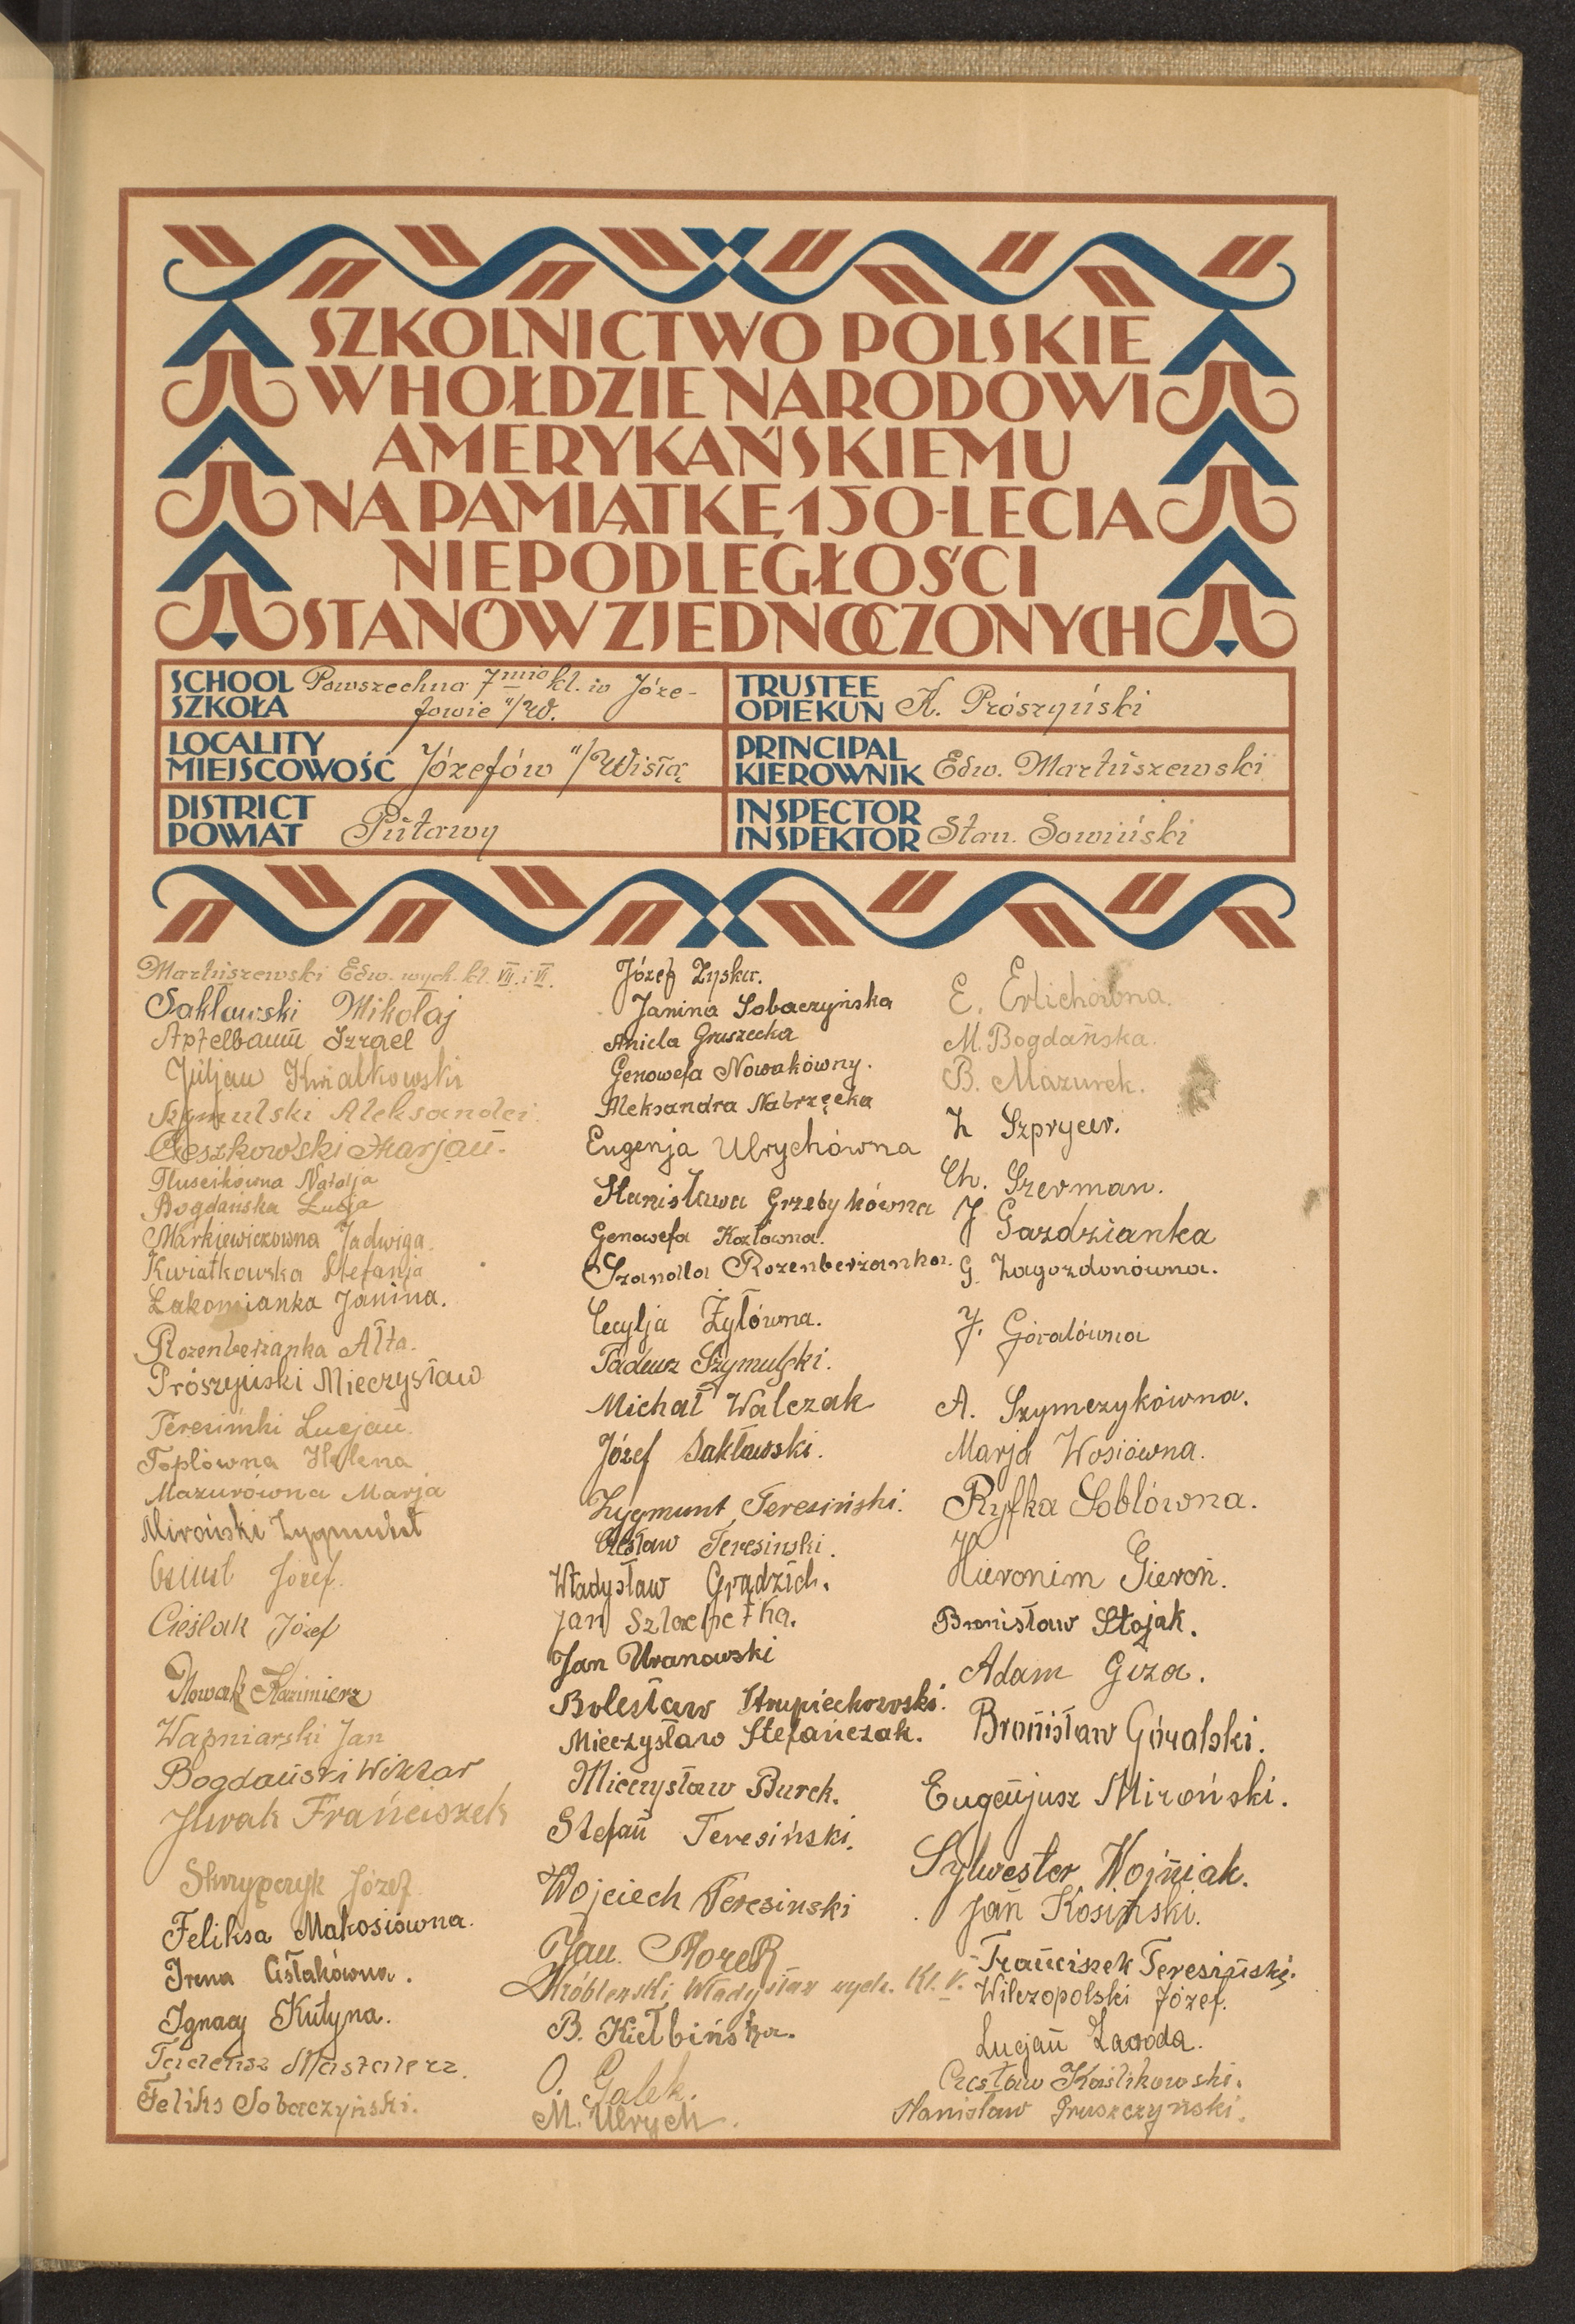 SZKOLNICTWO POLSKIE
W HOŁDZIE NARODOWI
AMERYKAŃSKIEMU
NA PAMIĄTKĘ 150-LECIA
NIEPODLEGŁOŚCI
STANÓW ZJEDNOCZONYCH
SCHOOL
SZKOŁA
Powszechna 7mio kl. w Józe-
fowie n/W.
TRUSTEE
OPIEKUN
K. Prószyński
LOCALITY
MIEJSCOWOŚĆ
Józefów n/Wisłą
PRINCIPAL
KIEROWNIK
Edw. Martuszewski
DISTRICT
POWIAT
Puławy
INSPECTOR
INSPEKTOR
Stan. Sowiński
Martuszewski Edw. wych. kl. VII. i VI.
Sakławski Mikołaj
Apfelbaum Izrael
Juljan Kwiatkowski
Szymulski Aleksander
Cieszkowski Marjan.
Natalja
Bogdańska Lucja
Markiewiczówna Jadwiga
Kwiatkowska Stefanja
Łakomianka Janina.
Rozenberżanka Ałta.
Prószyński Mieczysław
Teresiński Lucjan.
Toplówna Helena
Mazurówna Marja
Miroński Zygmunt
Józef.
Cieślak Józef
Nowak Kazimierz
Wapniarski Jan
Bogdański Wiktor
Franciszek
Skrypczyk Józef
Feliksa Makosiówna.
Irena Cistakówna.
Ignacy Kutyna.
Tadeusz Mastalerz.
Feliks Sobaczyński.
Józef Zyska.
Janina Sobaczyńska
Aniela Gruszecka
Genowefa Nowakówny.
Aleksandra Nabrzęcka
Eugenja Ulrychówna
Stanisława Grzebykówna
Genowefa Kozłówna.
Szandla Rozenberżanka.
Cecylja Żyłówna.
Tadeusz Szymulski.
Michał Walczak
Józef Sakławski.
Zygmunt Teresiński.
Czesław Teresinski.
Władysław Grądzich.
Jan Szlachetka.
Jan Uranowski
Bolesław Strupiechowski.
Mieczysław Stefańczak.
Mieczysław Burek.
Stefan Teresiński.
Wojciech Teresinski
Jan Morek
Wróblewski Władysław wych. Kl. V.
B. Kiełbińska.
O. Galek.
M. Ulrych.
E. Erlichówna.
M. Bogdańska.
B. Mazurek.
Z Szprycer.
Ch. Szerman.
J Gazdzianka
G. Zagozdonówna.
J. Góralówna
A. Szymczykówna.
Marja Wosiówna.
Ryfka Soblówna.
Hieronim Gieroń.
Bronisław Stojak.
Adam Giza.
Bronisław Góralski.
Eugenjusz Miroński.
Sylwester Woźniak.
Jan Kosiński.
Franciszek Teresiński.
Wilczopolski Józef.
Lucjan Zagoda.
Czesław Kaślikowski.
Stanisław Gruszczyński.